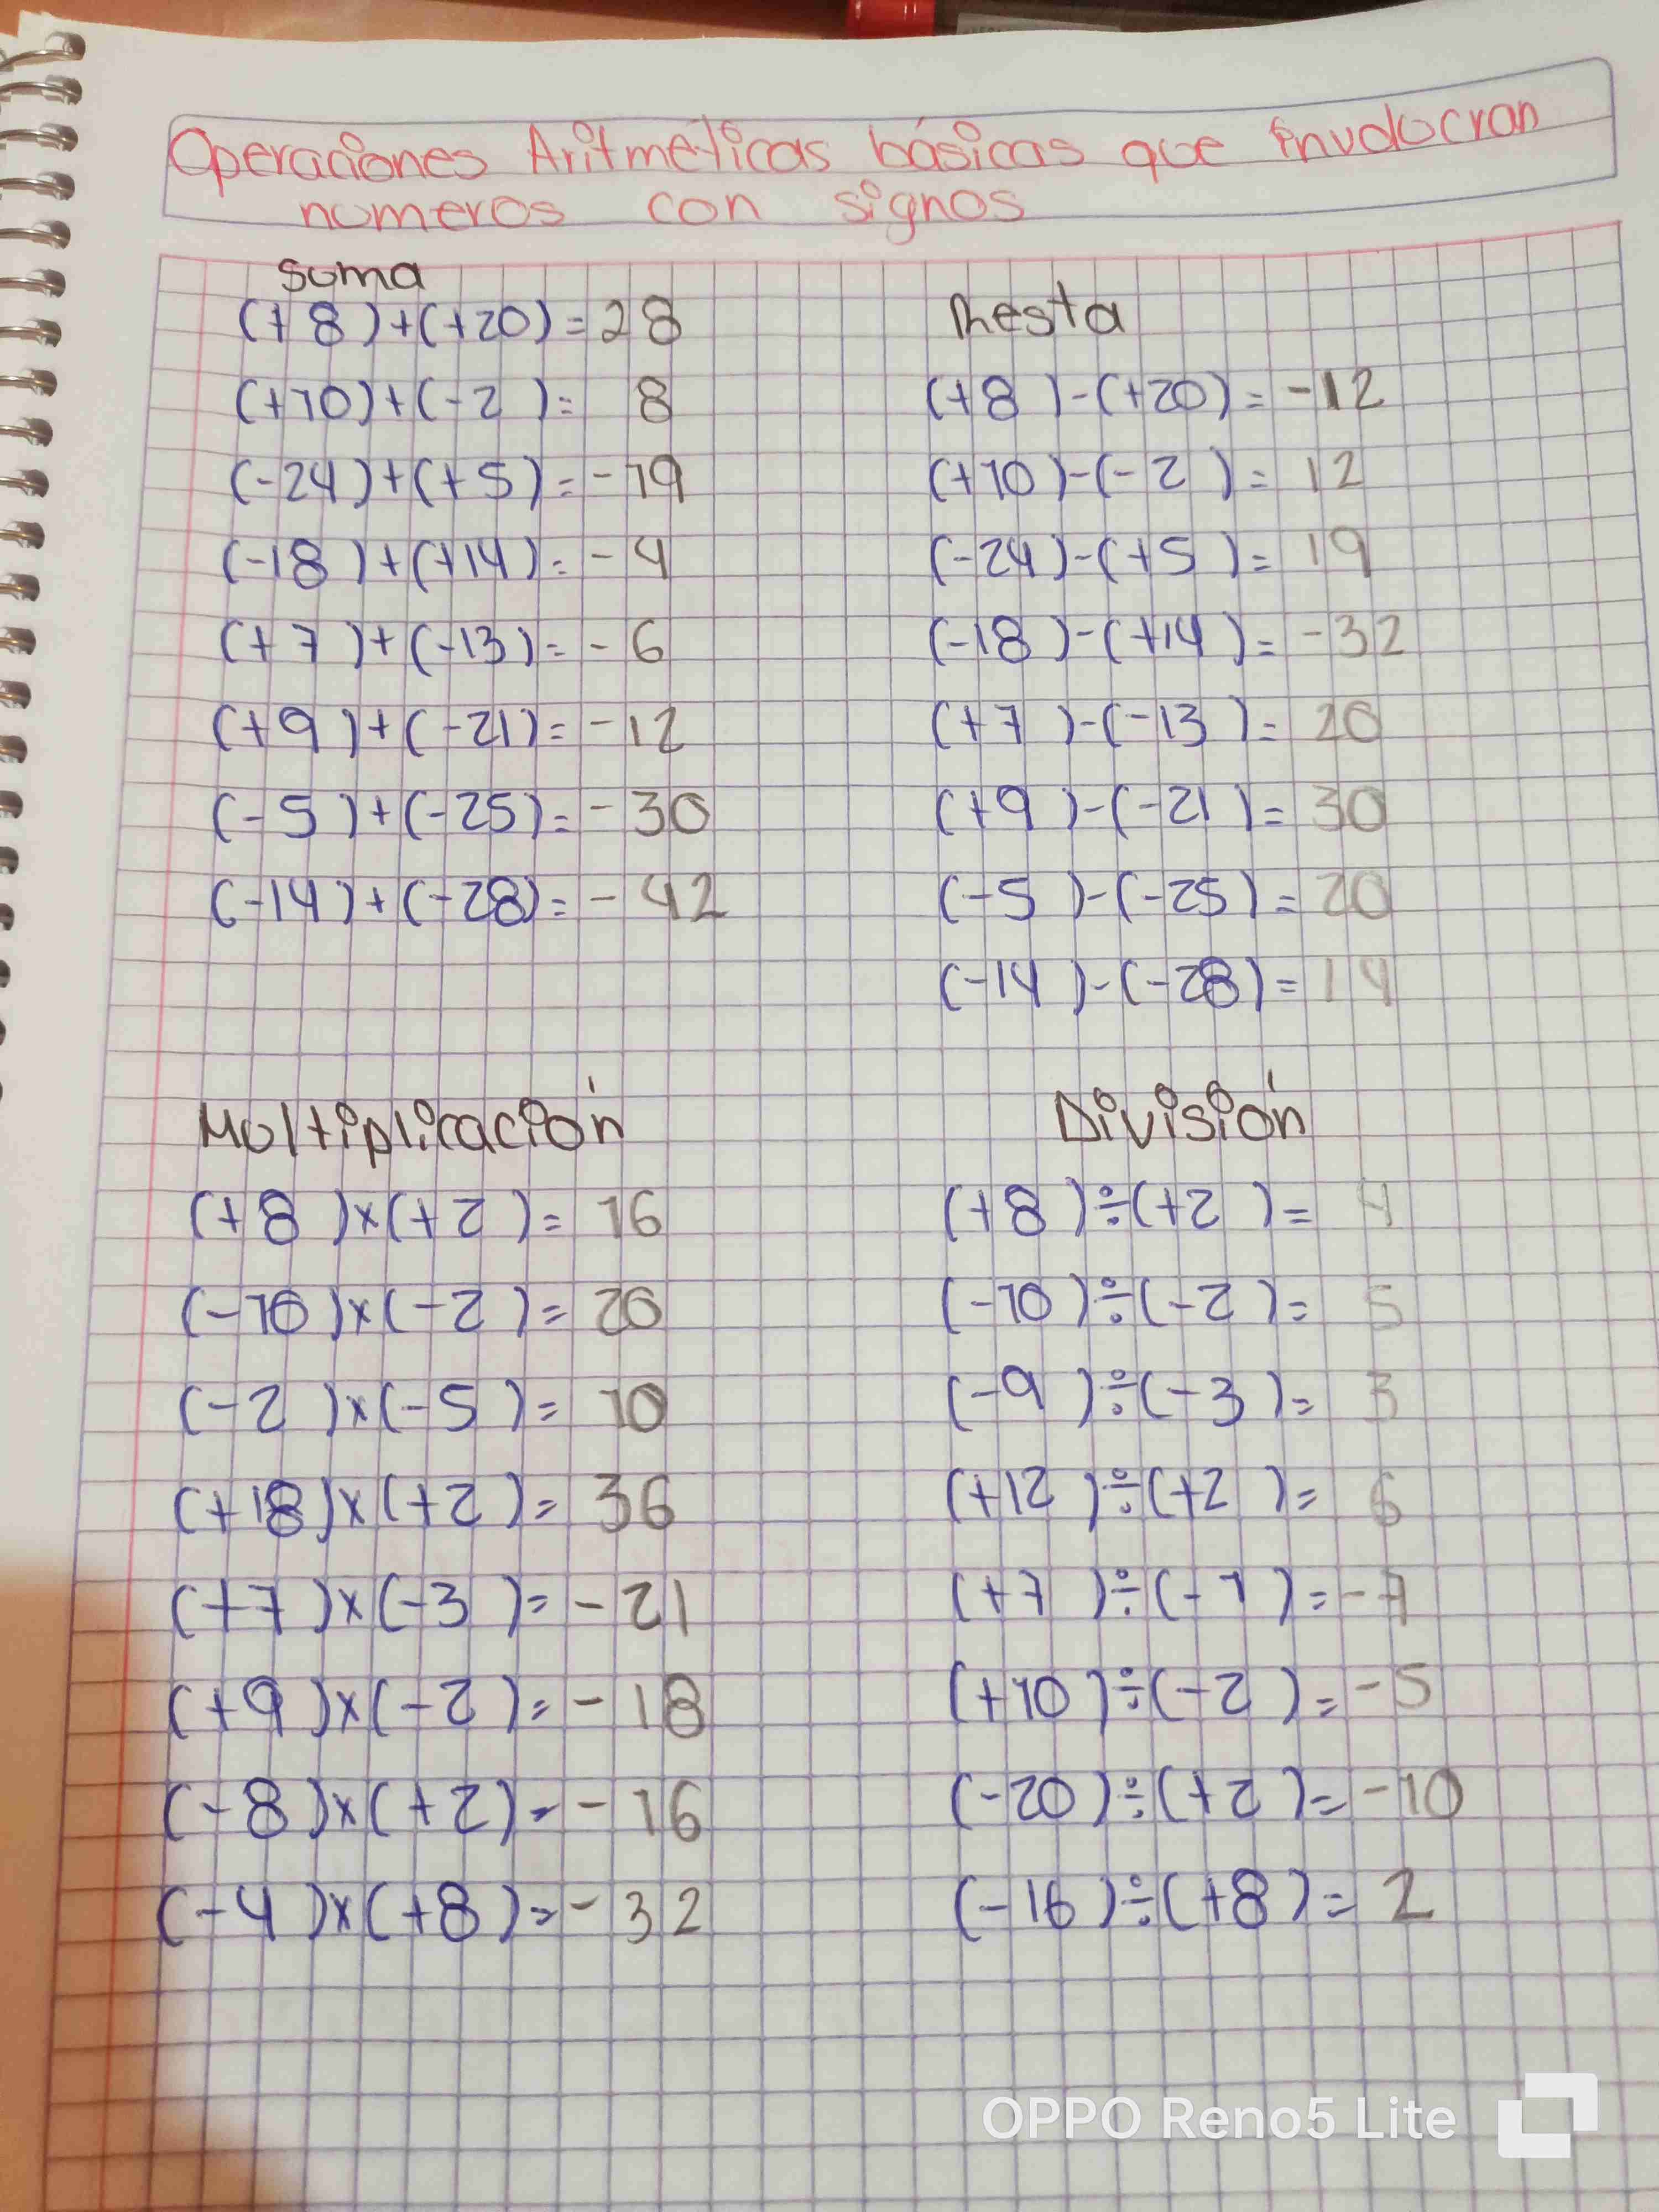 Operaciones Aritméticas básicas que involucran
numeros con signos
Suma
(+8)+(+20)=28
(+10)+(-2)= 8
(-24)+(+5)=-19
(-18)+(+14)=-4
(+7)+(-13)=-6
(+9)+(-21)=-12
(-5)+(-25)=-30
(-14)+(-28)=-42
Resta
(+8)-(+20)=-12
(+10)-(-2)=12
(-24)-(+5)=19
(-18)-(+14)=-32
(+7)-(-13)=20
(+9)-(-21)=30
(-5)-(-25)=20
(-14)-(-28)=14
Multiplicación
(+8)x(+2)=16
(-10)x(-2)=20
(-2)x(-5)=10
(+18)x(+2)=36
(+7)x(-3)=-21
(+9)x(-2)=-18
(-8)x(+2)=-16
(-4)x(+8)=-32
División
(+8)÷(+2)=4
(-10)÷(-2)=5
(-9)÷(-3)=3
(+12)÷(+2)=6
(+7)÷(-1)=-7
(+10)÷(-2)=-5
(-20)÷(+2)=-10
(-16)÷(+8)=2
OPPO Reno5 Lite